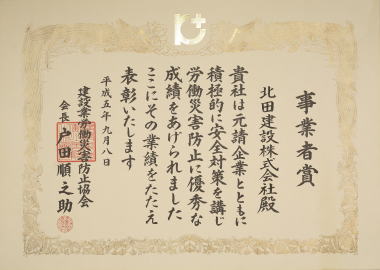 事業者賞
北田建設株式会社殿
貴社は元請企業とともに
積極的に安全対策を講じ
労働災害防止に優秀な
成績をあげられました
ここにその業績をたたえ
表彰いたします
平成五年九月八日
建設業労働災害防止協会
会長 戸田順之助